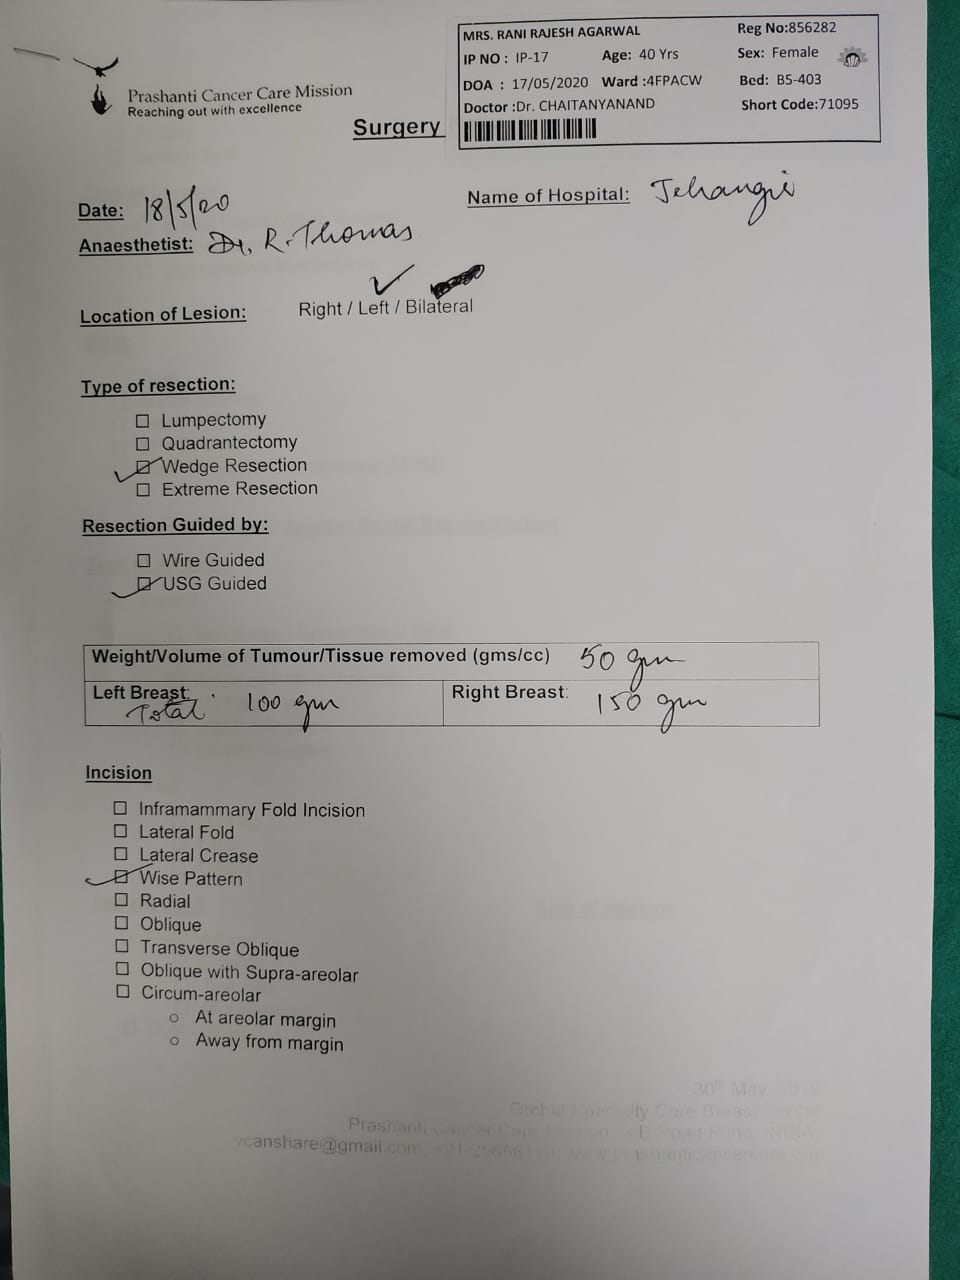 MRS. RANI RAJESH AGARWAL Reg No:856282
IP NO : IP-17 Age: 40 Yrs Sex: Female
DOA : 17/05/2020 Ward :4FPACW Bed: B5-403
Doctor :Dr. CHAITANYANAND Short Code:71095
Prashanti Cancer Care Mission
Reaching out with excellence
Surgery
Date: 18/5/20 Name of Hospital: Jehangir
Anaesthetist: Dr. R. Thomas
Location of Lesion: Right / Left / Bilateral
Type of resection:
Lumpectomy
Quadrantectomy
Wedge Resection
Extreme Resection
Resection Guided by:
Wire Guided
USG Guided
Weight/Volume of Tumour/Tissue removed (gms/cc) 50 gm
Left Breast: Total 100 gm Right Breast: 150 gm
Incision
Inframammary Fold Incision
Lateral Fold
Lateral Crease
Wise Pattern
Radial
Oblique
Transverse Oblique
Oblique with Supra-areolar
Circum-areolar
o At areolar margin
o Away from margin
30th May
Orchid Specialty Care Breast
Prashanti Cancer Care Mission, Road Pune, INDIA
vcanshare@gmail.com, www.prashanticancercare.org